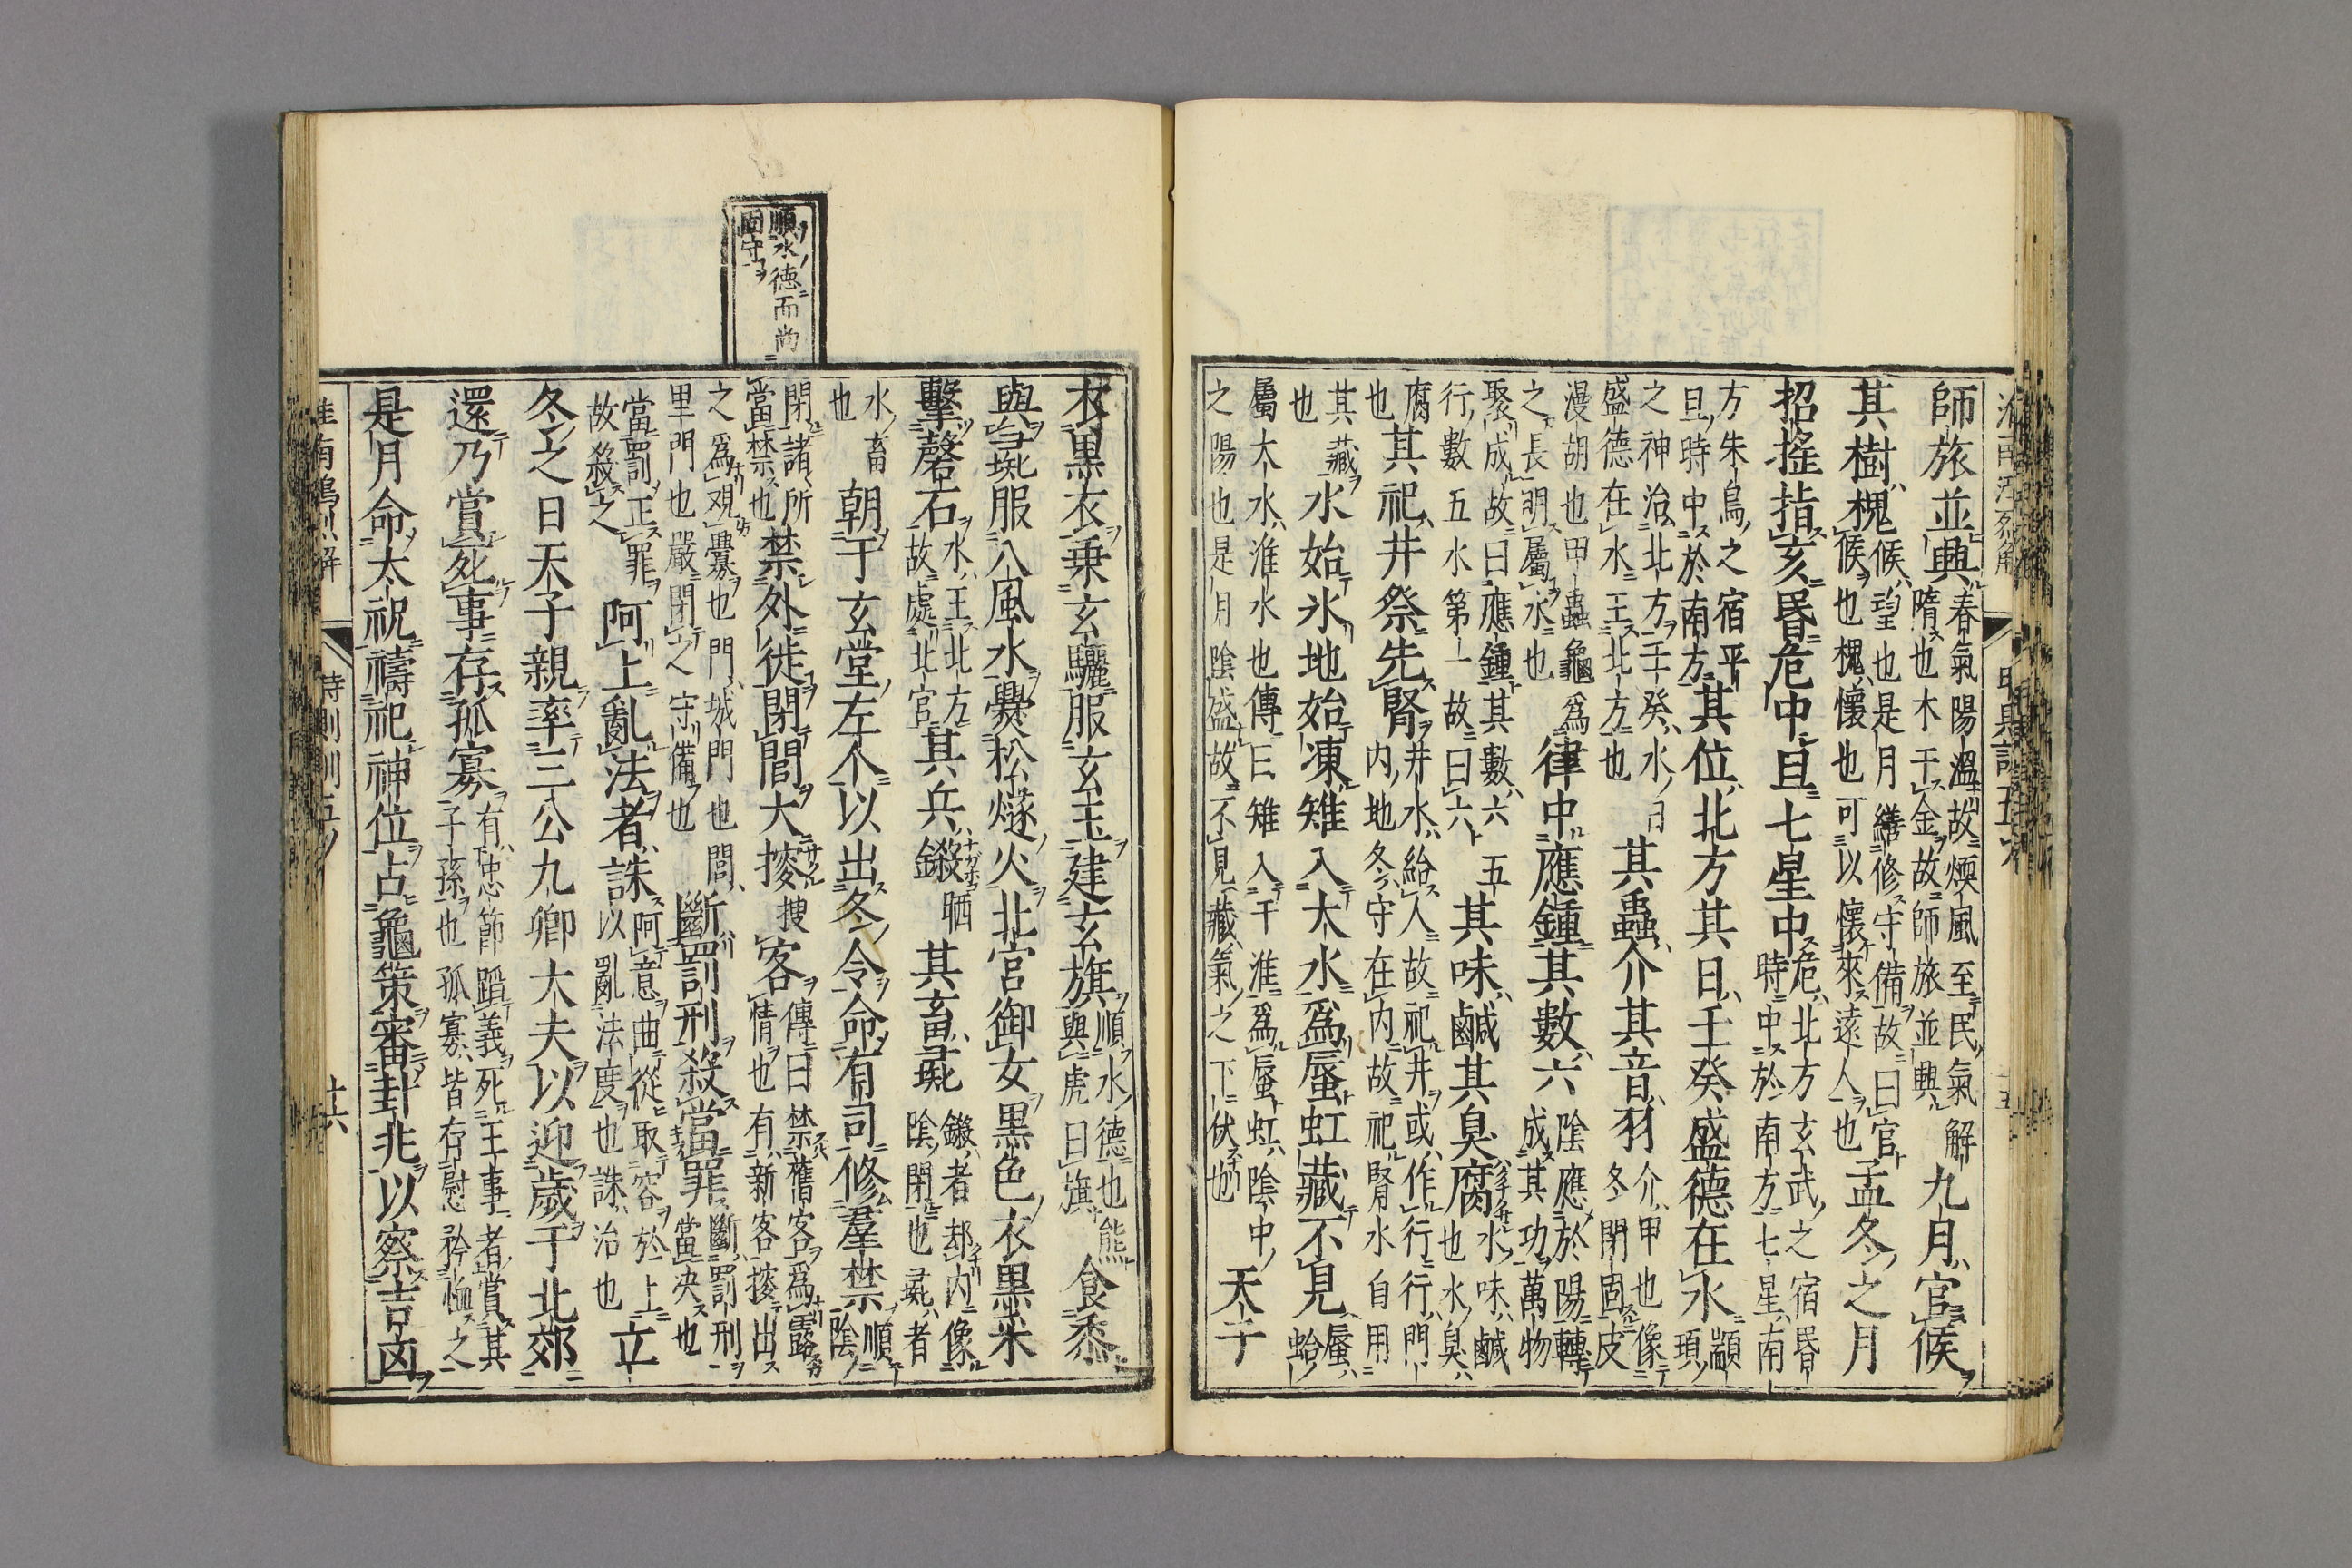 淮南鴻烈解
師旅並興春氣陽溫故煗風至民氣解隋也木干金故師旅並興九月官候
其樹槐候望也是月繕修守備故曰官候也槐懷也可以懷來遠人也孟冬之月
招搖指亥昏危中旦七星中危北方玄武之宿昏時中於南方七星南
方朱鳥之宿平旦時中於南方其位北方其日壬癸盛德在水顓頊
之神治北方壬癸水日盛德在水王北方也其蟲介其音羽介甲也像冬閉固皮
漫胡也甲蟲龜爲之長明屬水也律中應鍾其數六陰應於陽轉成其功萬物
聚成故曰應鍾其數六五行數五水第一故曰六其味鹹其臭腐水味鹹也水臭
腐也其祀井祭先腎井水給人故祀井或作行行門内地冬守在内故祀腎水自用
其藏也水始氷地始凍雉入大水爲蜃虹藏不見蜃蛤
屬大水淮水也傳曰雉入于淮爲蜃虹陰中之陽也是月陰盛故不見藏氣之下伏也天子
順水德而尚
固守
衣黒衣乗玄驪服玄玉建玄旗順水德也熊與虎曰旗食黍
與彘服八風水爨松燧火北宮御女黒色衣黒采
擊磬石水王北方故處北宮其兵鎩晒其畜彘鎩者却内像陰閉也彘者
水畜也朝于玄堂左个以出冬令命有司修羣禁順陰
閉諸所當禁也禁外徙閉閭大搜搜客傳曰禁舊客爲露情也有新客搜出
之爲覌釁也門城門也閭里門也嚴閉之守備也斷罰刑殺當罪斷罰刑當决也
當罰正罪故殺之阿上亂法者誅阿意曲從取容於上以亂法度也誅治也立
冬之日天子親率三公九卿大夫以迎歲于北郊
還乃賞死事存孤寡有忠節蹈義死王事者賞其子孫也孤寡皆存慰矜恤之
是月命大祝禱祀神位占龜策審卦兆以察吉凶
淮南鴻烈解
時則訓五
十六